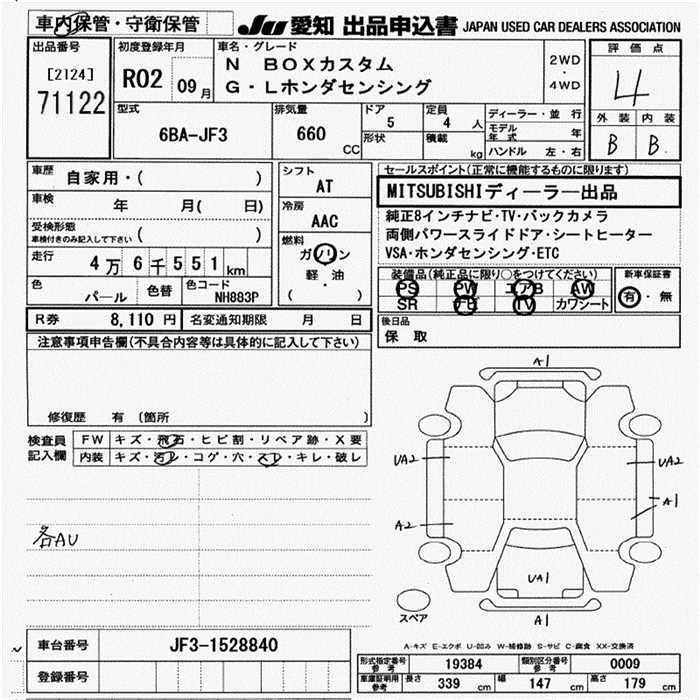 車内保管・守衛保管
JU 愛知 出品申込書 JAPAN USED CAR DEALERS ASSOCIATION
出品番号
[2124]
71122
初度登録年月
R02 09月
車名・グレード
N BOXカスタム
G・Lホンダセンシング
2WD
・
4WD
評価点
4
外装 内装
B B
型式
6BA-JF3
排気量
660 CC
ドア
5
形状
定員
4 人
積載
kg
ディーラー・並行
モデル年式 年
ハンドル 左・右
車歴 自家用・( )
車検 年 月( 日)
受検形態
車検付きのみ記入して下さい ( )
走行 4万6千551km
色 パール 色替 色コード NH883P
シフト
AT
冷房
AAC
燃料
ガソリン
軽・油
( )
セールスポイント(正常に機能するものに限ります)
MITSUBISHIディーラー出品
純正8インチナビ・TV・バックカメラ
両側パワースライドドア・シートヒーター
VSA・ホンダセンシング・ETC
装備品(純正品に限り○をつけてください)
PS PW エアB AW
SR ナビ TV カワシート
新車保証書
有・無
R券 8,110円 名変通知期限 月 日
後日品
保取
注意事項申告欄(不具合内容等は具体的に記入して下さい)
修復歴 有 (箇所
検査員記入欄
FW キズ・飛石・ヒビ割・リペア跡・X要
内装 キズ・汚レ・コゲ・穴・スレ・キレ・破レ
各AU
A1
UA2
UA2
A1
A2
UA1
A1
スペア
A-キズ E-エクボ U-凹み W-補修跡 S-サビ C-腐食 XX-交換済
車台番号 JF3-1528840
登録番号
形式指定番号参考 19384 類別区分番号参考 0009
車庫証明用参考 長さ 339 cm 幅 147 cm 高さ 179 cm